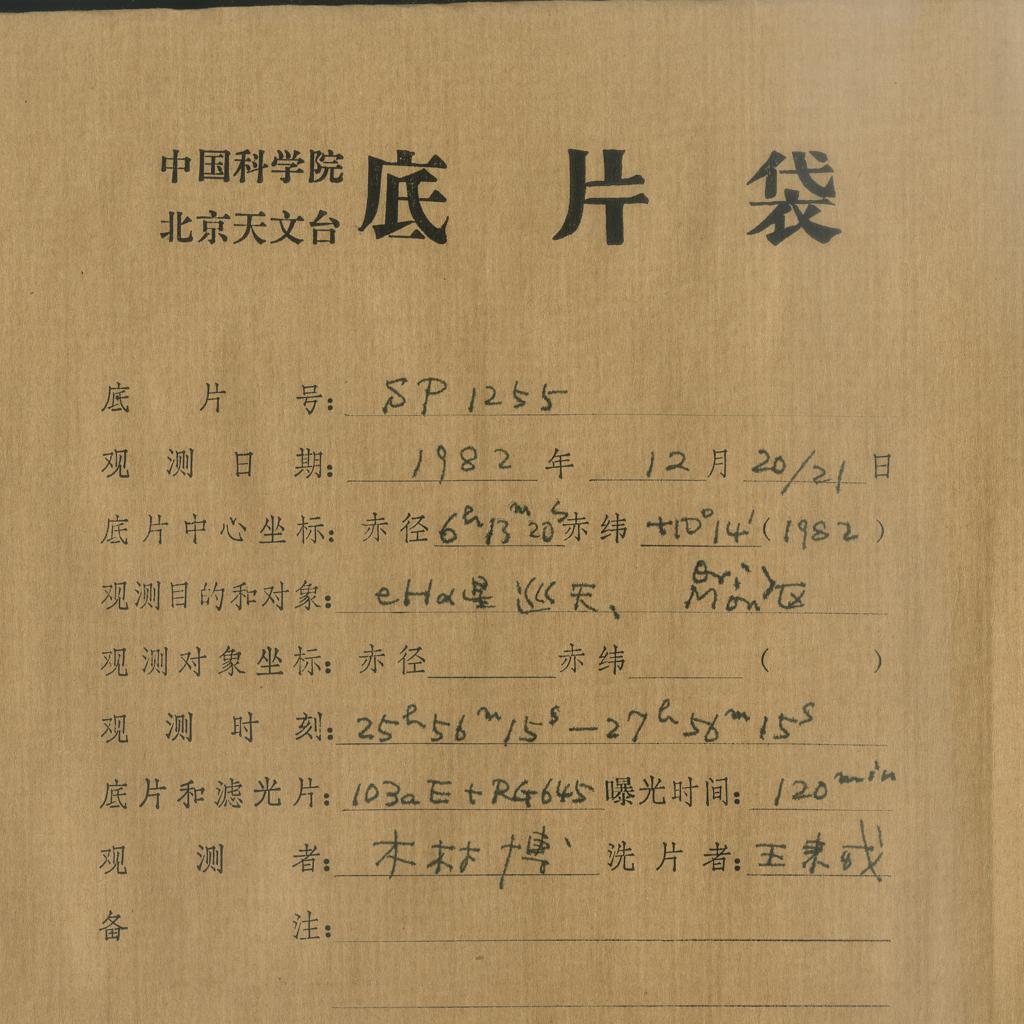 中国科学院
北京天文台
底片袋
底片号: SP 1255
观测日期: 1982 年 12 月 20/21 日
底片中心坐标: 赤径 6h13m20s 赤纬 +10°14′ (1982)
观测目的和对象: eHα星 巡天、 Ori Mon 区
观测对象坐标: 赤径 赤纬 ( )
观测时刻: 25h56m15s—27h56m15s
底片和滤光片: 103aE+RG645 曝光时间: 120min
观测者: 木林 博 洗片者: 王
备注: